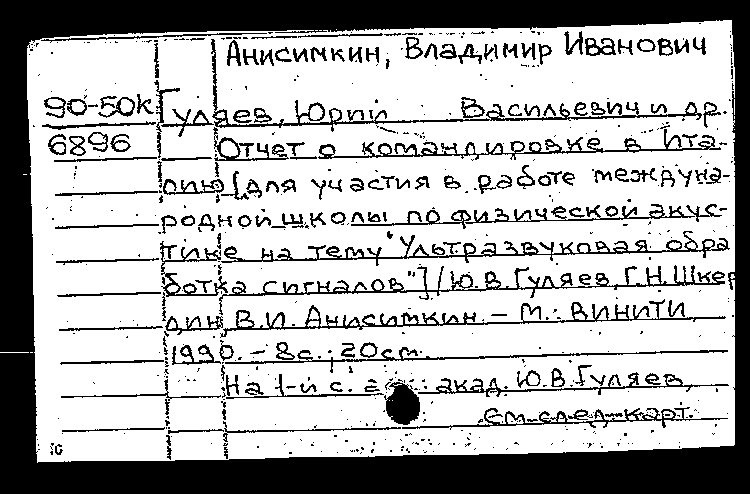 Анисимкин, Владимир Иванович
90-50к Гуляев, Юрий Васильевич и др.
6896 Отчет о командировке в Ита-
лию [для участия в работе междуна-
родной школы по физической акус-
тике на тему "Ультразвуковая обра
ботка сигналов"]/Ю.В.Гуляев, Г.Н.Шкер
дин, В.И. Анисимкин. – М.: ВИНИТИ,
1990. – 8с.; 20см.
На 1-й с. акад. Ю.В.Гуляев,
см. след. карт.